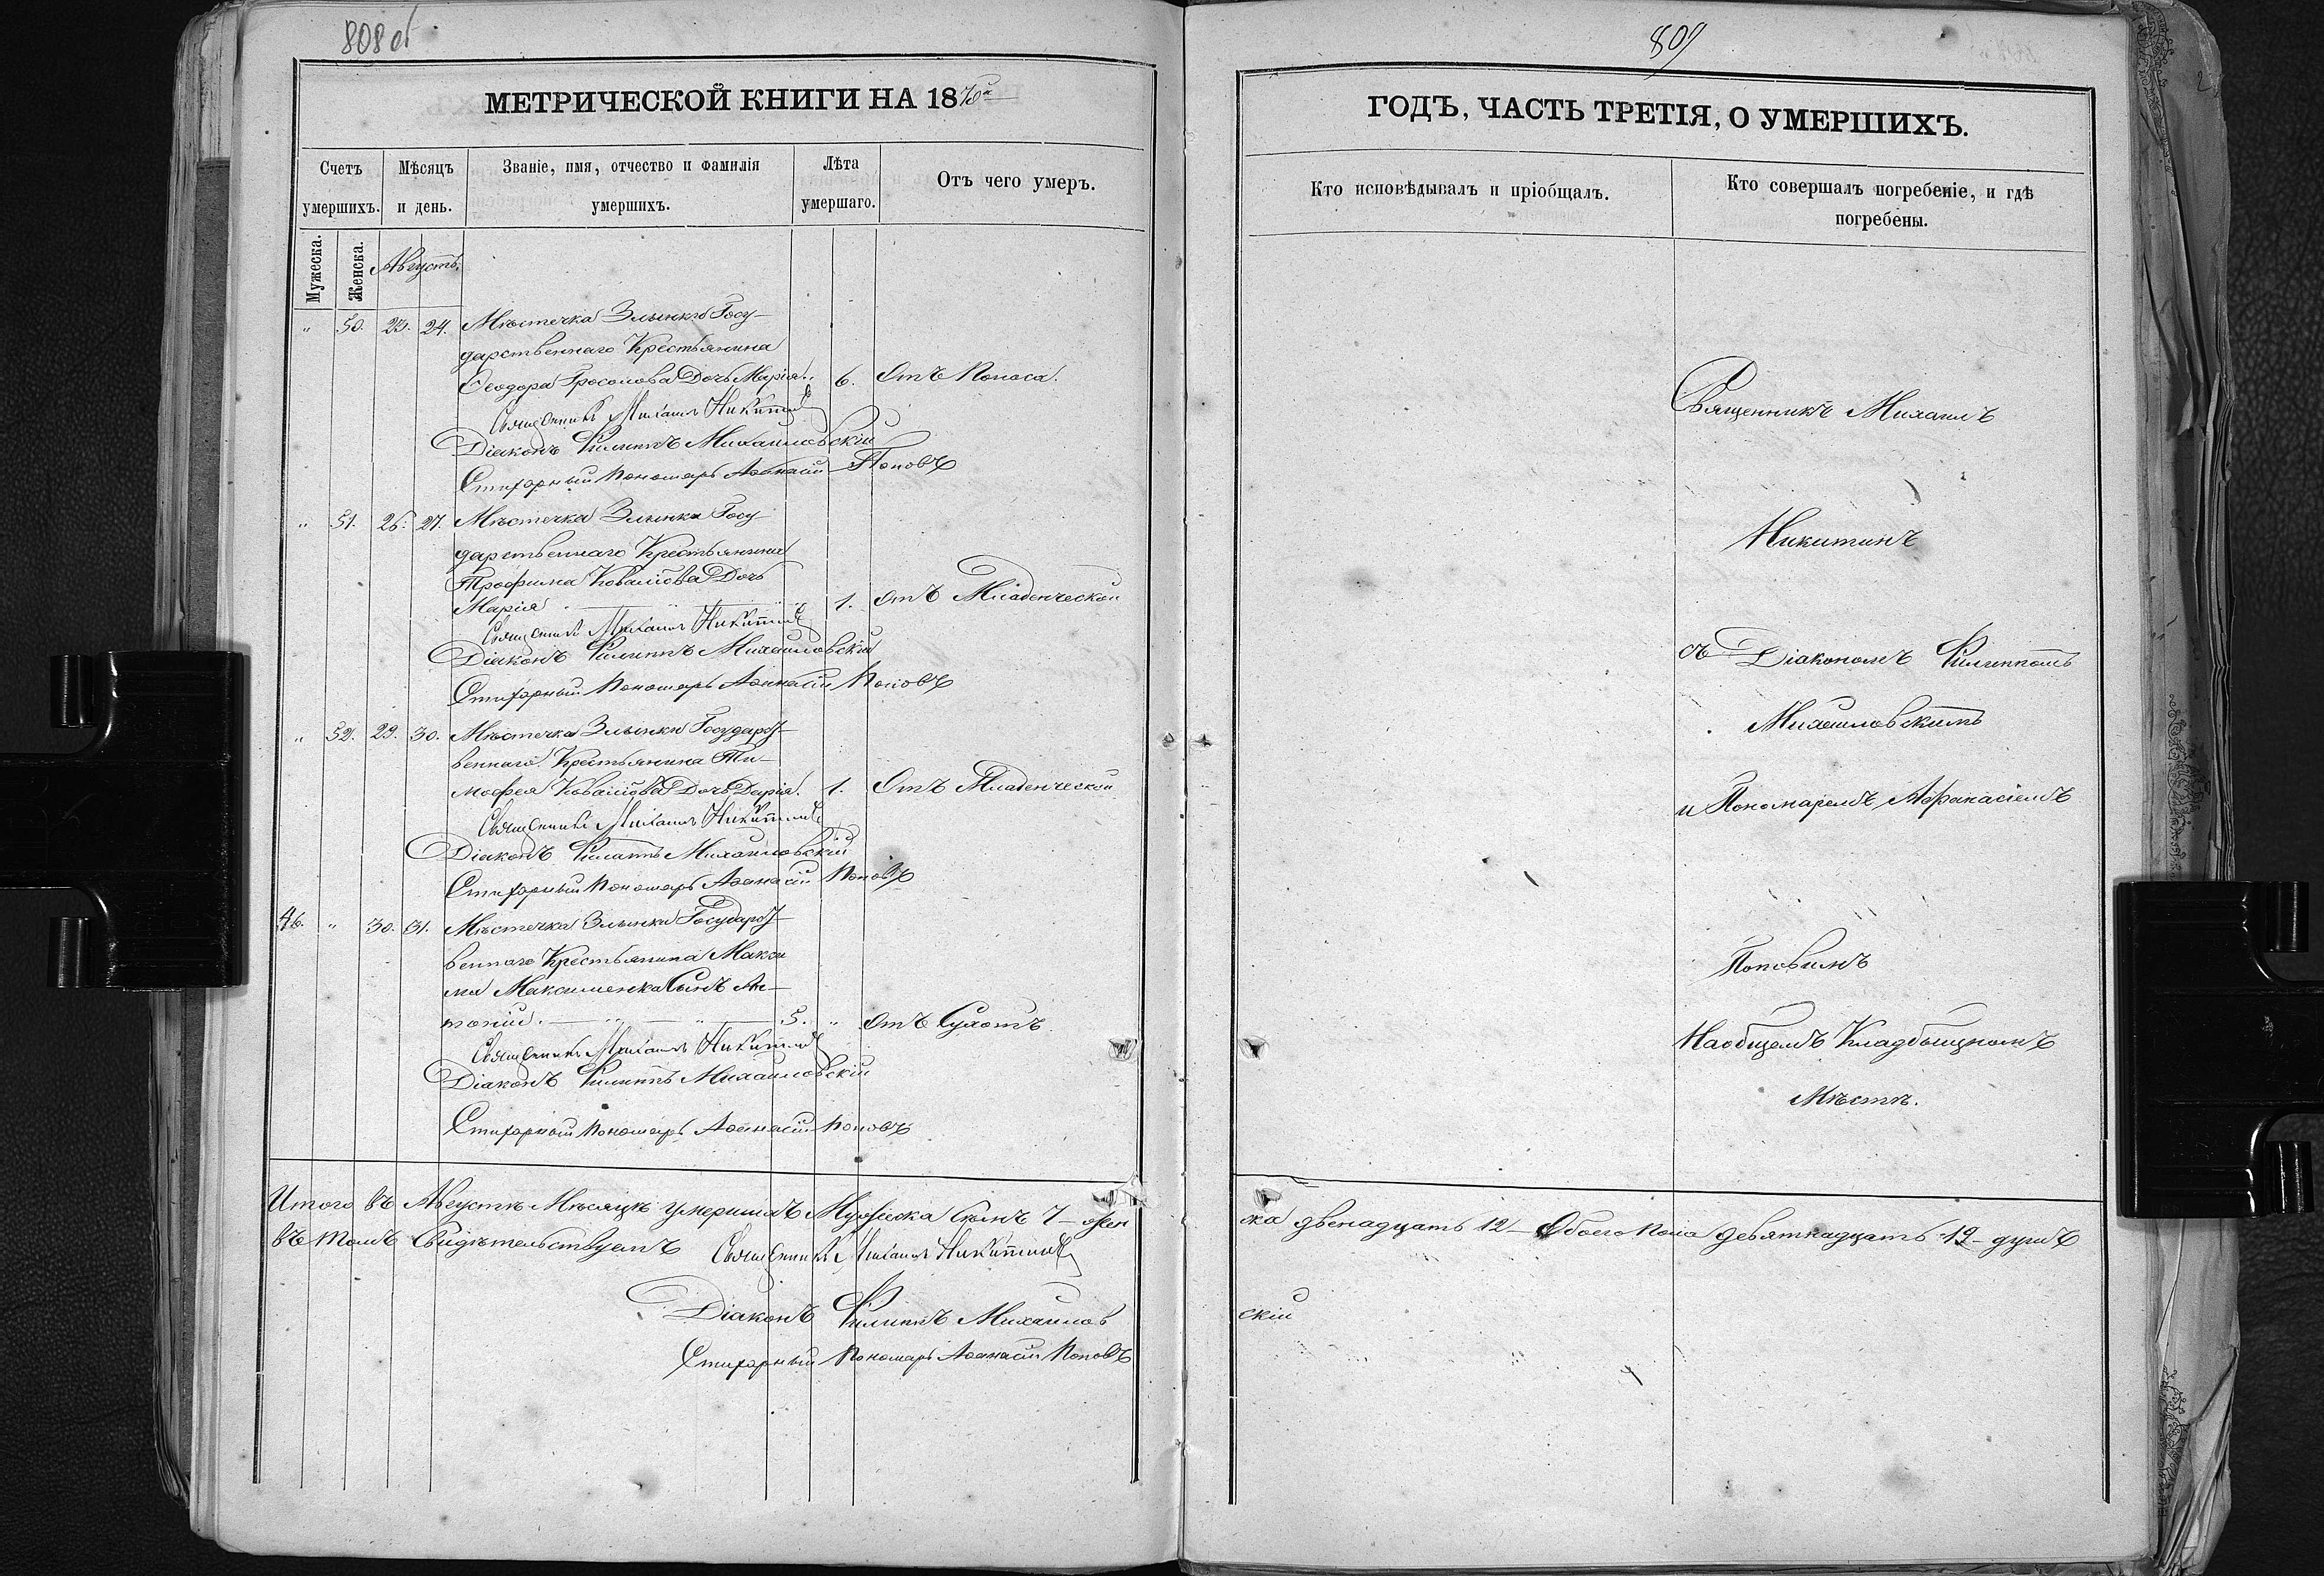 808 об
МЕТРИЧЕСКОЙ КНИГИ НА 1870й
Счетъ умершихъ.
Мѣсяцъ и день.
Званіе, имя, отчество и фамилія умершихъ.
Лѣта умершаго.
Отъ чего умеръ.
Мужеска.
Женска.
Августъ.
" 50. 23. 24. Мѣстечка Злынки Госу-
дарственнаго Крестьянина
Ѳеодора Дочь Марія. 6. Отъ Поноса.
Священникъ Михаилъ Никитинъ
Діаконъ Филиппъ Михаиловскій
Стихарный Пономарь Аѳанасій Поповъ
" 51. 26. 27. Мѣстечка Злынки Госу-
дарственнаго Крестьянина
Трофима Ковалёва Дочь
Марія " " 1. Отъ Младенческой
Священникъ Михаилъ Никитинъ
Діаконъ Филиппъ Михаиловскій
Стихарный Пономарь Аѳанасій Поповъ
" 52. 29. 30. Мѣстечка Злынки Государст-
веннаго Крестьянина Ти-
мофея Ковалёва Дочь Дарія. 1. Отъ Младенческой
Священникъ Михаилъ Никитинъ
Діаконъ Филиппъ Михаиловскій
Стихарный Пономарь Аѳанасій Поповъ
46. " 30. 31. Мѣстечка Злынки Государст-
веннаго Крестьянина Макси
ма Максименка Сынъ Ан-
тоній. " " 5. " Отъ Сухотъ
Священникъ Михаилъ Никитинъ
Діаконъ Филиппъ Михаиловскій
Стихарный Пономарь Аѳанасій Поповъ
Итого въ Августѣ Мѣсяцѣ умершихъ Мужеска 7 – жен
въ томъ Свидѣтельствуемъ Священникъ Михаилъ Никитинъ
Діаконъ Филиппъ Михаилов
Стихарный Пономарь Аѳанасій Поповъ
809
ГОДЪ, ЧАСТЬ ТРЕТІЯ, О УМЕРШИХЪ.
Кто исповѣдывалъ и пріобщалъ.
Кто совершалъ погребеніе, и гдѣ
погребены.
Священникъ Михаилъ
Никитинъ
съ Діакономъ Филиппомъ
Михаиловскимъ
и Пономаремъ Афанасіемъ
Поповымъ
На общемъ Кладбищномъ
Мѣстѣ.
ска двенадцать 12 – Обоего Пола девятнадцать 19 – душъ
скій